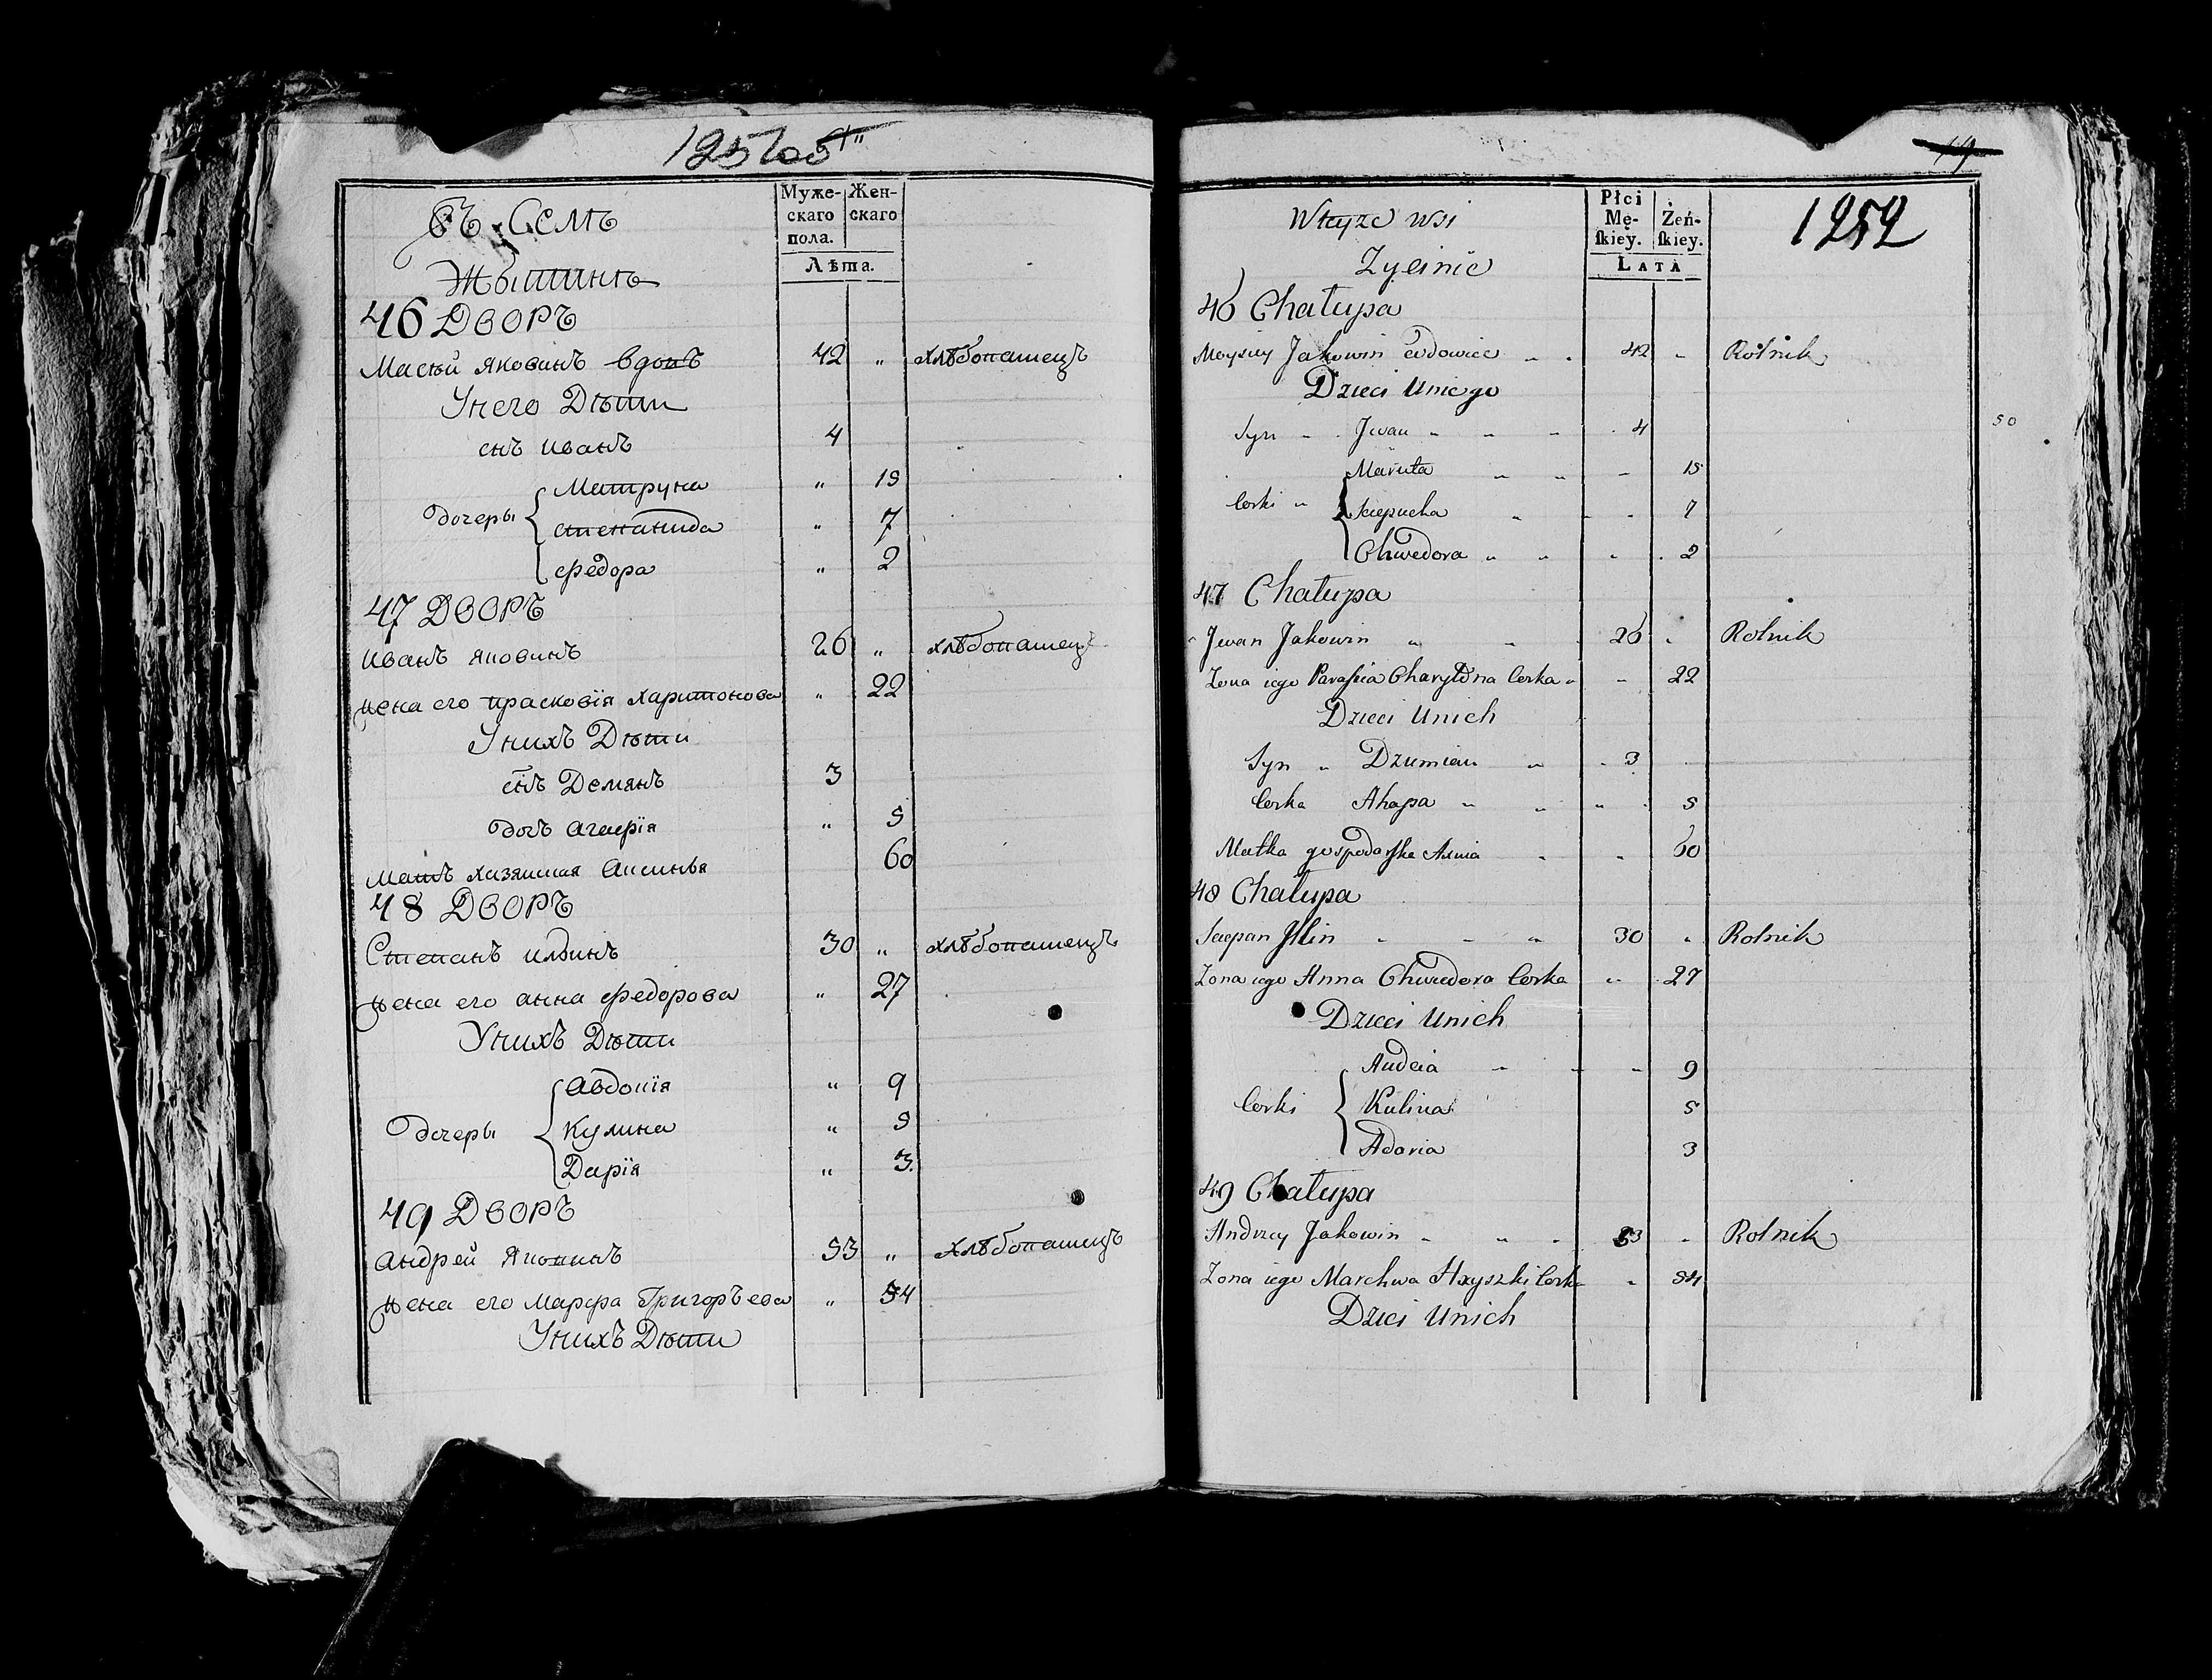 Муже-
скаго
пола.
Жен-
скаго
Лѣта.
Въ Селѣ
46 ДВОРЪ
Яковинъ вдовъ 42 „ хлѣбопашецъ
У него Дѣти
снъ Иванъ 4
Матруна „ 15
дочеры
Степанида „ 7
Федора „ 2
47 ДВОРЪ
Иванъ Яковинъ 26 „ хлѣбопашецъ
жена его Прасковїя Харитонова „ 22
У нихъ Дѣти
снъ Демянъ 3
дочъ „ 5
Аксинья 60
48 ДВОРЪ
Степанъ Илинъ 30 „ хлѣбопашецъ
жена его Анна Федорова „ 27
У нихъ Дѣти
Авдоцїя „ 9
дочеры Кулина „ 5
Дарїя „ 3
49 ДВОРЪ
Андрей Яковинъ 53 „ хлѣбопашецъ
жена его Марфа Григоръева „ 54
У нихъ Дѣти
19
1252
Płci
Mę-
ſkiey.
Żeń-
ſkiey.
LATA
W teyże wsi
46 Chałupa
Jakowin wdowiec „ 42 „ Rolnik
Dzieci U niego
Syn „ Jwan „ 4
Maruta „ 15
Corki „
7
Chwedora „ 2
47 Chałupa
Jwan Jakowin „ 26 „ Rolnik
Zona iego Parasia Charytona Corka „ 22
Dzieci U nich
Syn „ Dziemian „ 3
Corka Ahapa „ 5
Matka gospodarska Axinia „ 60
48 Chałupa
Sciepan Jllin „ 30 „ Rolnik
Zona iego Anna Chwedora Corka „ 27
Dzieci U nich
Audcia „ 9
Corki Kulina 5
Adaria 3
49 Chałupa
Andrzey Jakowin „ 53 „ Rolnik
Zona iego Marchwa Hryszki Corka „ 54
Dzieci U nich
50